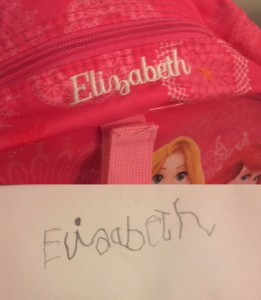 Elizabeth
Elizabeth